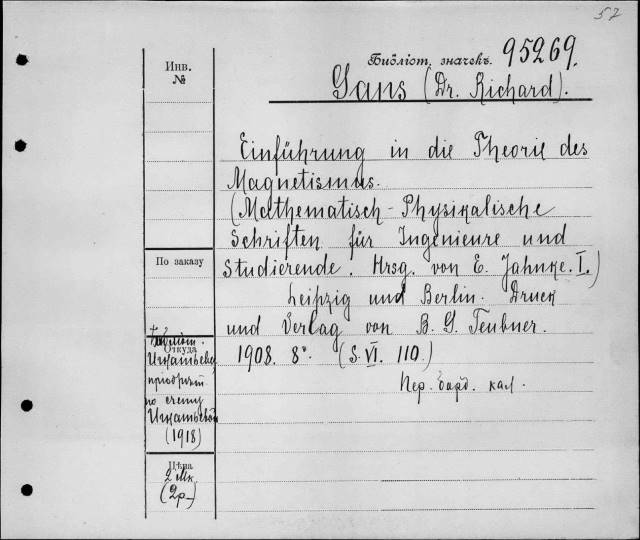 57
Библіот. значекъ. 95269.
Gans (Dr. Richard).
Инв.
№
Einführung in die Theorie des
Magnetismus.
(Mathematisch-Physikalische
Schriften für Ingenieure und
По заказу
Studierende. Hrsg. von E. Jahnke. I.)
Leipzig und Berlin. Druck
und Verlag von B. G. Teubner.
Откуда
1908. 8°. (S. VI. 110.)
Пер. кал.
пріобрѣт.
по счету
(1918)
Цѣна
2 Мк.
(2р.)